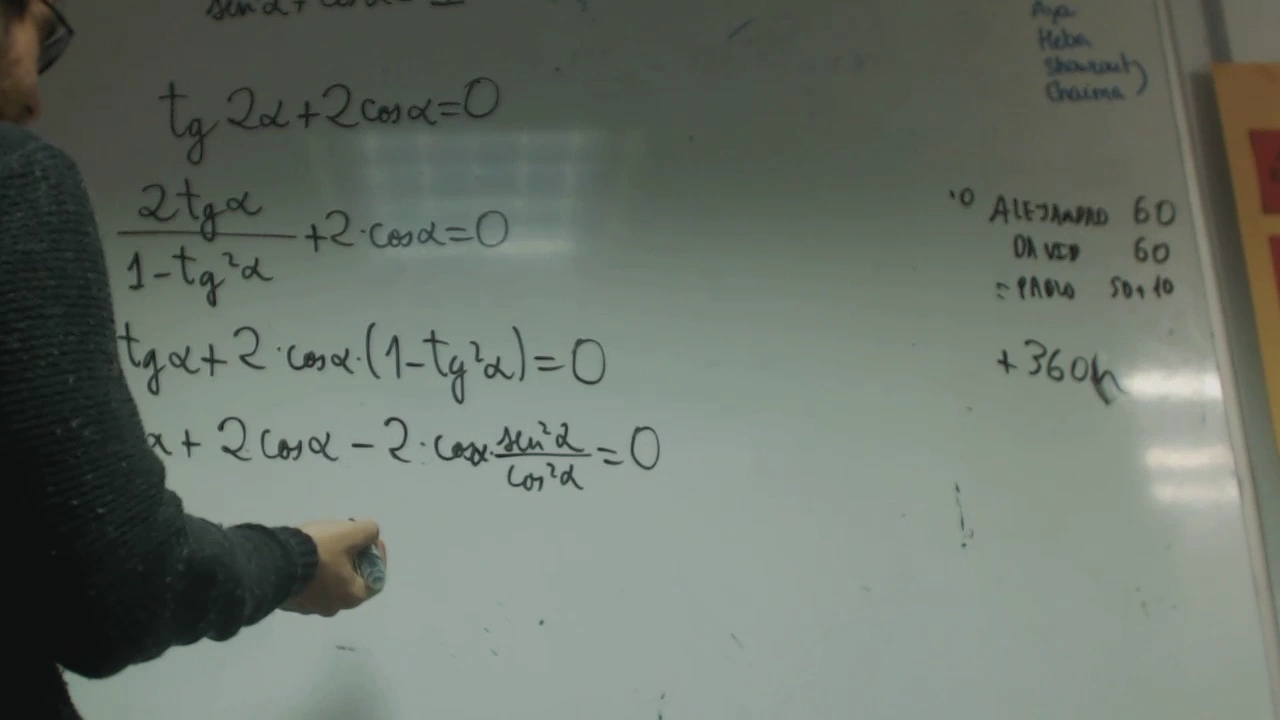 tg 2α + 2 cos α = 0
2 tg α / 1 - tg²α + 2 · cos α = 0
tg α + 2 · cos α · (1 - tg²α) = 0
α + 2 cos α - 2 · cos α · sen²α / cos²α = 0
Heba
Chaima )
60
DAVID 60
= PABLO 50+10
+360h